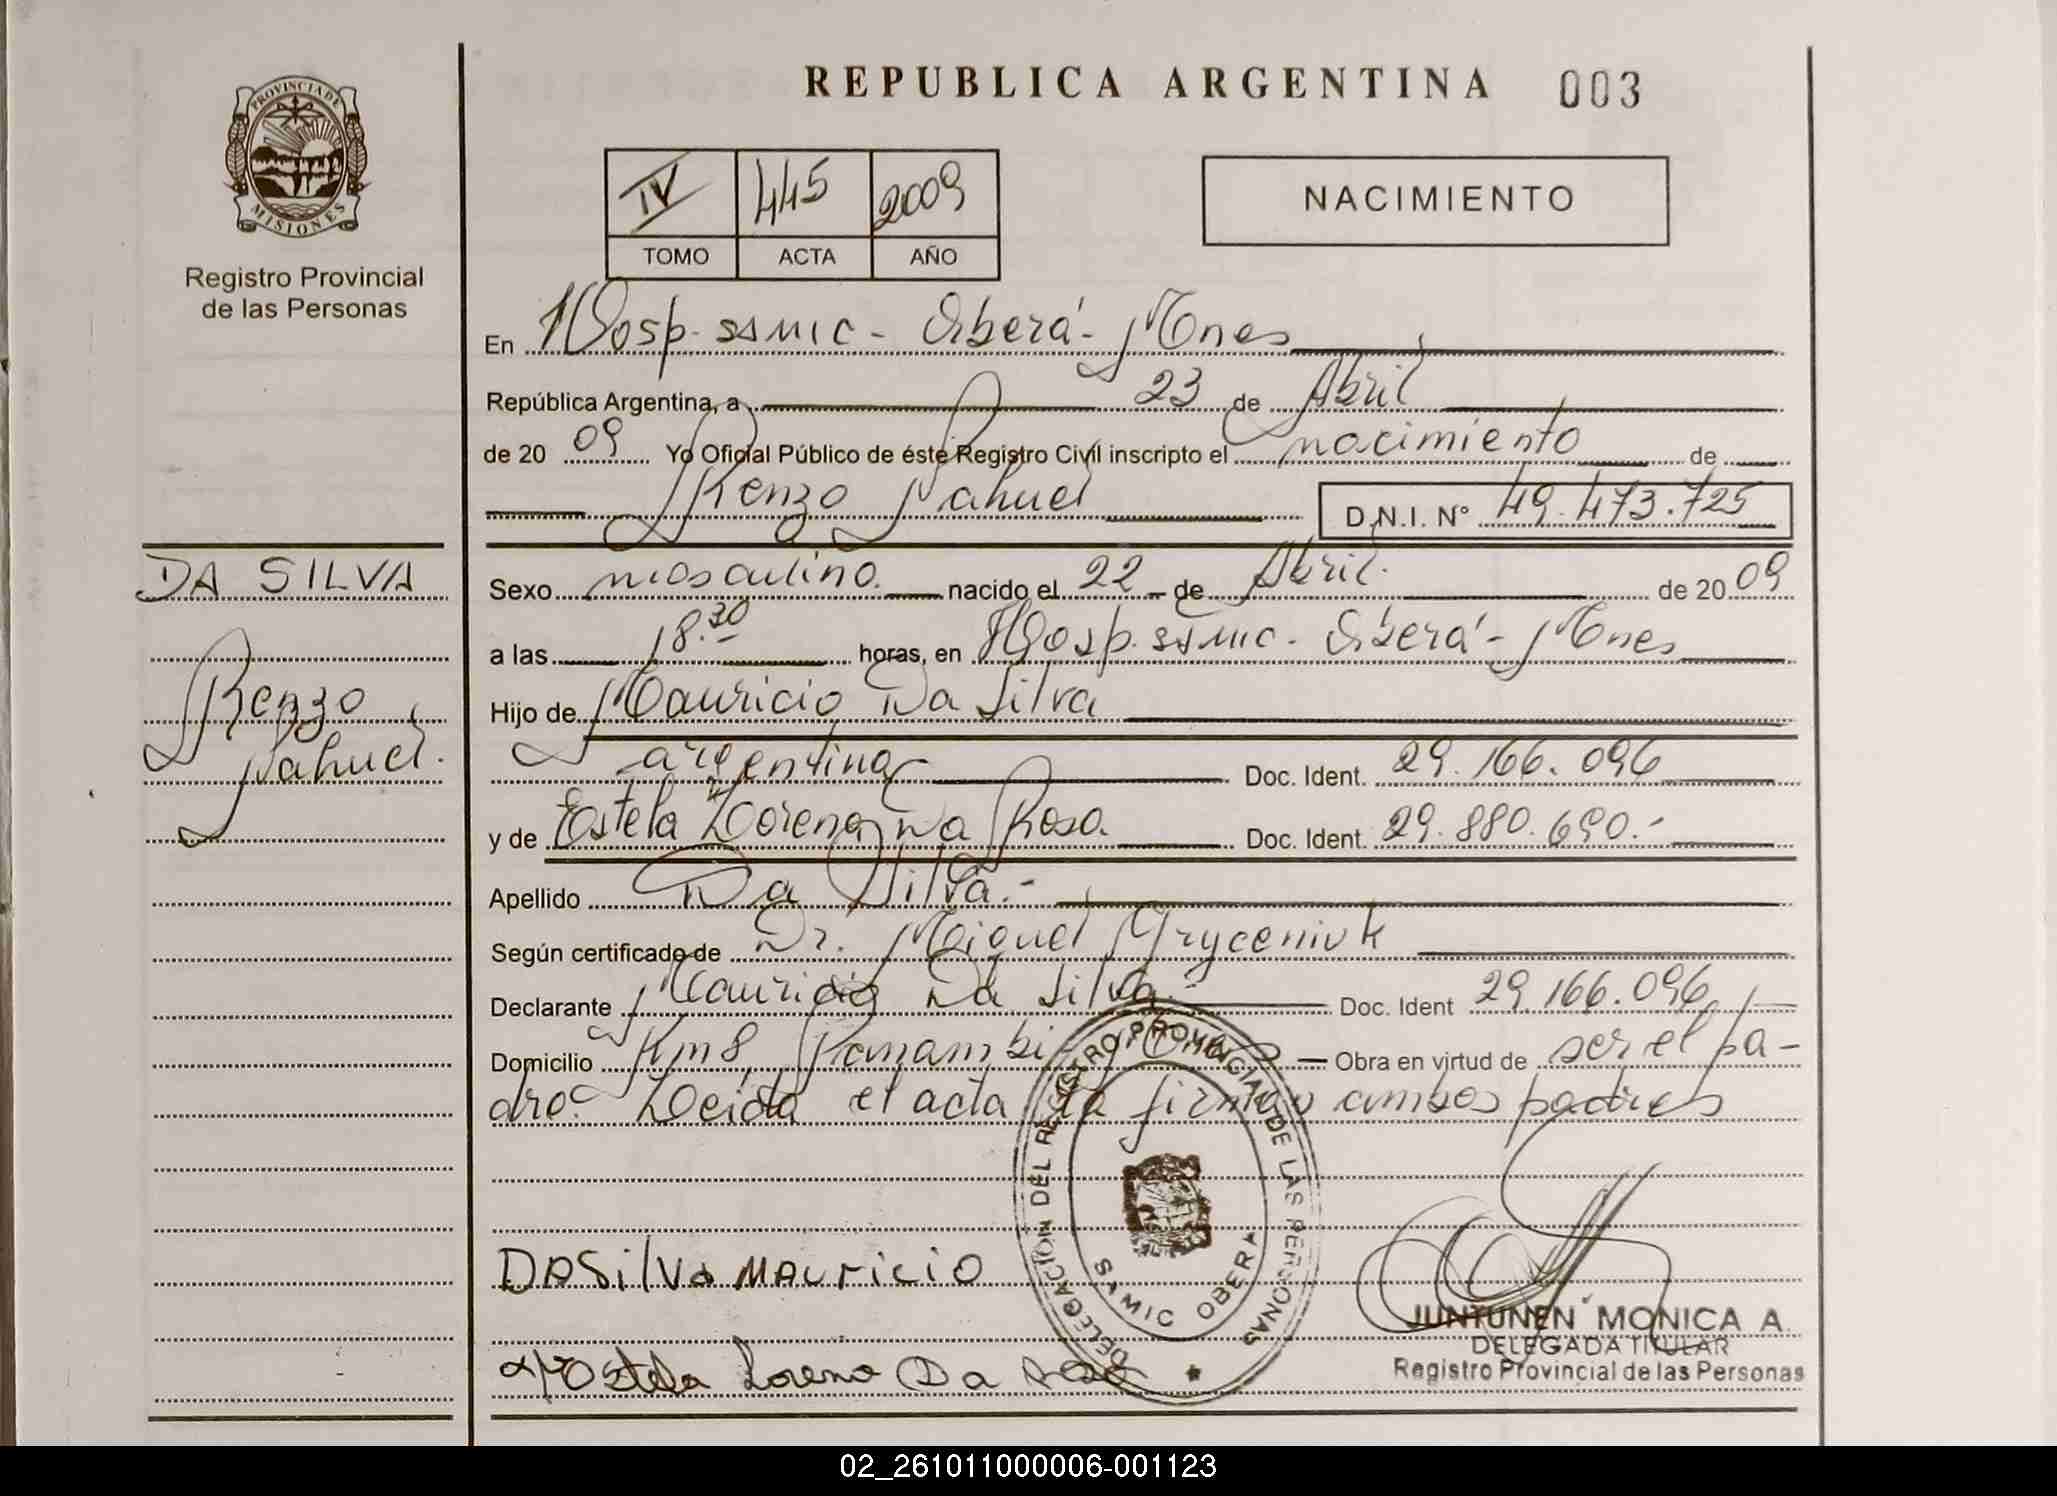 REPUBLICA ARGENTINA 003
PROVINCIA DE
MISIONES
Registro Provincial
de las Personas
IV 445 2009
TOMO ACTA AÑO
NACIMIENTO
En Hosp. ssmic - Oberá - Mnes
República Argentina, a 23 de Abril
de 20 09 Yo Oficial Público de éste Registro Civil inscripto el nacimiento de
Renzo Nahuel D.N.I. Nº 49.473.725
DA SILVA
Renzo
Nahuel.
Sexo masculino. nacido el 22 - de Abril. de 20 09
a las 18.30 horas, en Hosp. ssmic - Oberá - Mnes
Hijo de Mauricio Da Silva
argentina Doc. Ident. 29.166.096
y de Estela Lorena Da Rosa Doc. Ident. 29.880.690.-
Apellido Da Silva.-
Según certificado de Dr. Miguel Hryceniuk
Declarante Mauricio Da Silva.- Doc. Ident 29.166.096
Domicilio Km 8, Panambi Obra en virtud de ser el pa-
dre. Leida el acta la firman ambos padres
DELEGACIÓN DEL REGISTRO PROVINCIAL DE LAS PERSONAS
SAMIC OBERA
DaSilva MAuricio
Estela Lorena Da Rosa
JUNTUNEN MONICA A.
DELEGADA TITULAR
Registro Provincial de las Personas
02_261011000006-001123